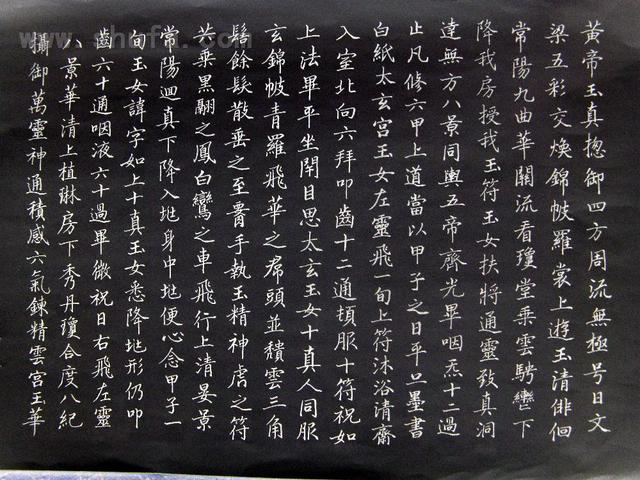 黄帝玉真揔御四方周流無極号曰文
梁五彩交煥錦帔羅裳上遊玉清俳佪
常陽九曲華關流看瓊堂乗雲騁轡下
降我房授我玉符玉女扶將通靈致真洞
達無方八景同輿五帝齊光畢咽炁十二過
止凡修六甲上道當以甲子之日平旦墨書
白紙太玄宫玉女左靈飛一旬上符沐浴清齋
入室北向六拜叩齒十二通頓服十符祝如
上法畢平坐閉目思太玄玉女十真人同服
玄錦帔青羅飛華之帬頭並頽雲三角
髻餘髮散垂之至𦝫手執玉精神虎之符
共乗黒翮之鳳白鸞之車飛行上清晏景
常陽迴真下降入地身中地便心念甲子一
旬玉女諱字如上十真玉女悉降地形仍叩
齒六十通咽液六十過畢微祝曰右飛左靈
八景華清上植琳房下秀丹瓊合度八紀
攝御萬靈神通積感六氣鍊精雲宫玉華